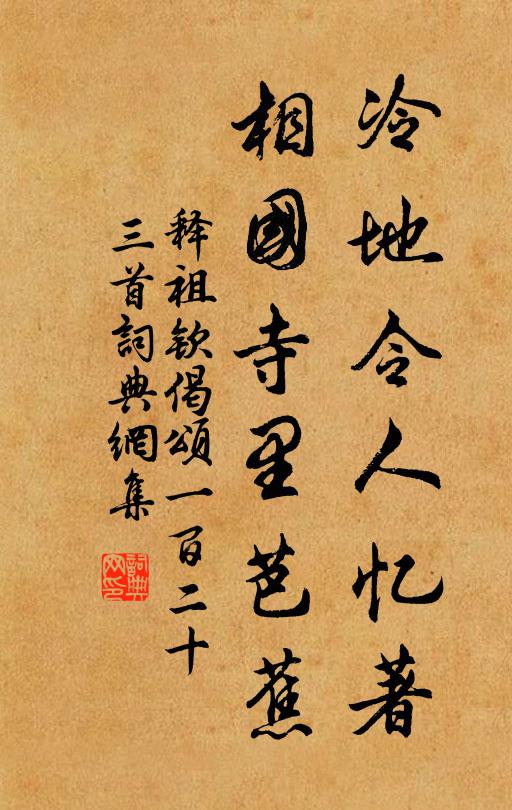 冷地令人忆著
相國寺里芭蕉
释祖钦偈頌一百二十
三首詞典網集
詞典
网印